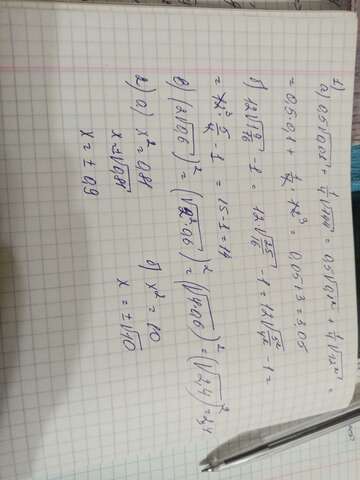 1) а) 0,5√0,01 + 1/4√144 = 0,5√0,1² + 1/4√12² =
= 0,5·0,1 + 1/4·12³ = 0,05+3=3,05
б) 12√1 9/16 - 1 = 12√25/16 - 1 = 12√5²/4² - 1 =
= 12³·5/4 - 1 = 15-1=14
в) (2√0,6)² = (√2²·0,6)² = (√4·0,6)² = (√2,4)² = 2,4
2) а) x² = 0,81 б) x² = 10
x = ±√0,81 x = ±√10
x = ± 0,9